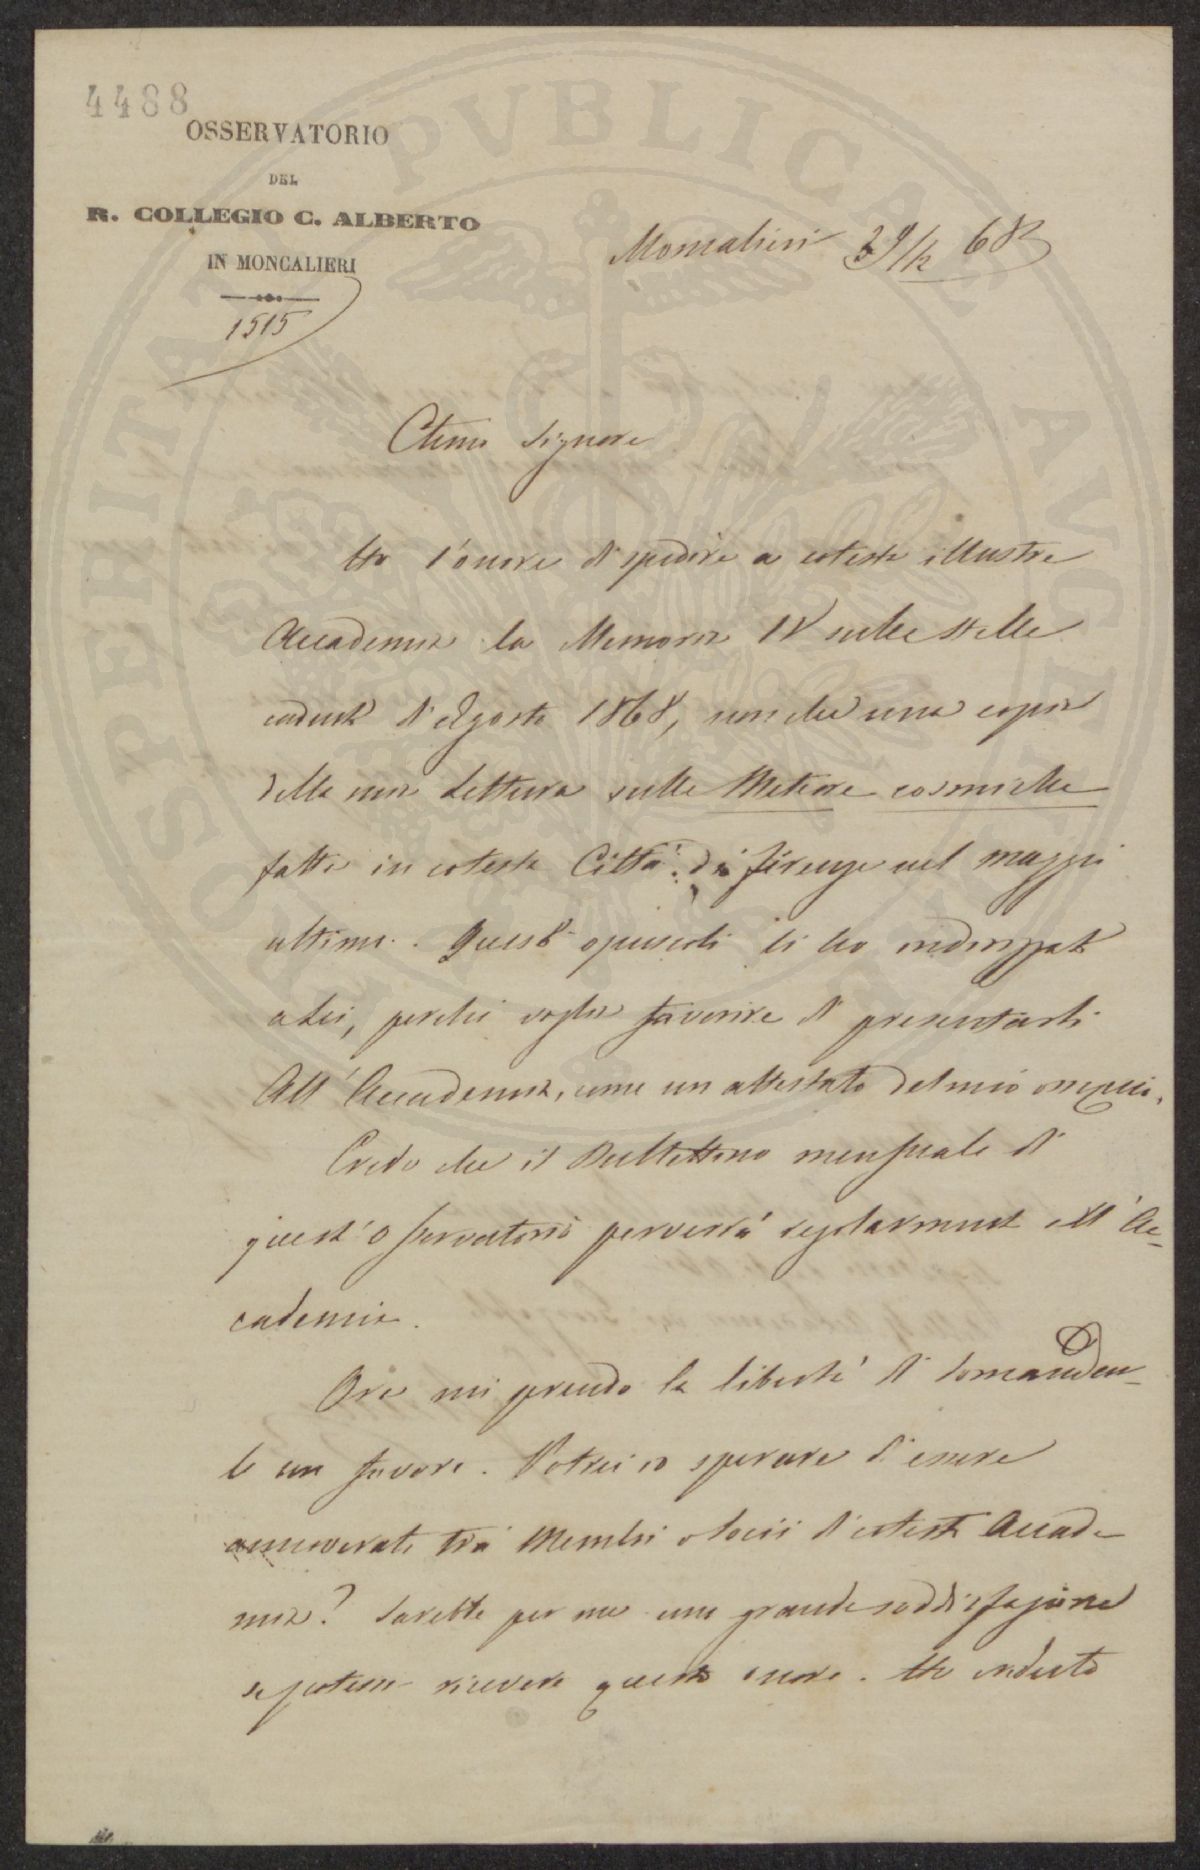 4488
OSSERVATORIO
DEL
R. COLLEGIO C. ALBERTO
IN MONCALIERI
1515
Moncalieri 29/12 68
Ch.mo Signore
Ho l'onore di spedire a cotesta illustre
Accademia la Memoria IV sulle stelle
cadenti d'Agosto 1868, non che una copia
della mia Lettura sulle Meteore cosmiche
fatta in cotesta Città di Firenze nel maggio
ultimo. Questi opuscoli li ho indirizzati
a Lei, perché voglia favorire di presentarli
All'Accademia, come un attestato del mio ossequio.
Credo che il Bullettino mensuale di
quest'Osservatorio perverrà regolarmente all'Ac-
cademia.
Ora mi prendo la libertà di domandar-
le un favore. Potrei io sperare di essere
annoverato tra' Membri o Socii di cotesta Accade-
mia? Sarebbe per me una grande soddisfazione
se potessi ricevere questo onore. Ho veduto
PVBLICAE AVGENDAE PROSPERITATI